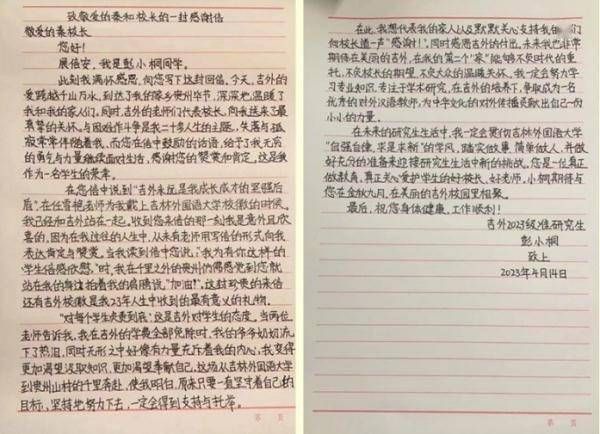 致敬爱的秦和校长的一封感谢信
敬爱的秦校长
您好!
展信安,我是彭小桐同学。
此刻我满怀感恩,向您写下这封回信。今天,吉外的
爱跨越千山万水,到达了我的家乡贵州毕节,深深地温暖了
我和我的家人们。同时,吉外的老师们代表校长,向我送来了最
真挚的关怀。与困难作斗争是我二十多年人生的主题,失落与孤
寂常常伴随着我,而您在信中鼓励的话语,给予了我无穷
的勇气与力量继续面对生活,感谢您的赞赏和肯定,这是我作
为一名学生的荣幸。
在您信中说到"吉外永远是我成长成才的坚强后
盾"。在任雪艳老师为我戴上吉林外国语大学校徽的时候,
我已经和吉外站在一起。收到您来信的那一刻我是意外且欣
喜的,因为在我过往的人生中,从未有老师用写信的形式向我
表达肯定与赞赏。当我读到信中您说:"我为有你这样的
学生倍感欣慰。"时,我在千里之外的贵州仿佛感觉到您就
站在我的身边拍着我的肩膀说:"加油!"。这封珍贵的来信
还有吉外校徽是我23年人生中收到的最有意义的礼物。
"对每个学生负责到底"这是吉外对学生的态度。当两位
老师告诉我,我在吉外的学费全部免除时,我的爷爷奶奶流
下了热泪,同时无形之中好像有力量充斥着我的内心,我变得
更加渴望汲取知识,更加渴望奉献自己。这场从吉林外国语大学
到贵州山村的千里奔赴,使我明白,原来只要一直坚守着自己的
目标,坚持地努力下去,一定会得到支持与托举。
第 页
在此,我想代表我的家人以及默默关心支持我的人们
向校长道一声"感谢!"。同时感恩吉外的付出。未来我也非常
期待在美丽的吉外,在我的第二个"家"能够不负时代的重
托,不负校长的期望,不负大众的温暖关怀。我一定会努力学
习专业知识,专注于学术研究,在吉外的培养下,争取成为一名
优秀的对外汉语教师,为中华文化的对外传播贡献出自己一份
小小的力量。
在未来的研究生生活中,我一定会贯彻吉林外国语大学
"自强自律,求是求新"的学风,踏实做事,简单做人,并做
好充分的准备来迎接研究生生活中新的挑战。您是一位真正
做教育,真正关心爱护学生的好校长、好老师,小桐期待与
您在金秋九月,在美丽的吉外校园里相聚。
最后,祝您身体健康,工作顺利!
吉外2023级准研究生
彭小桐
致上
2023年4月14日
第 页